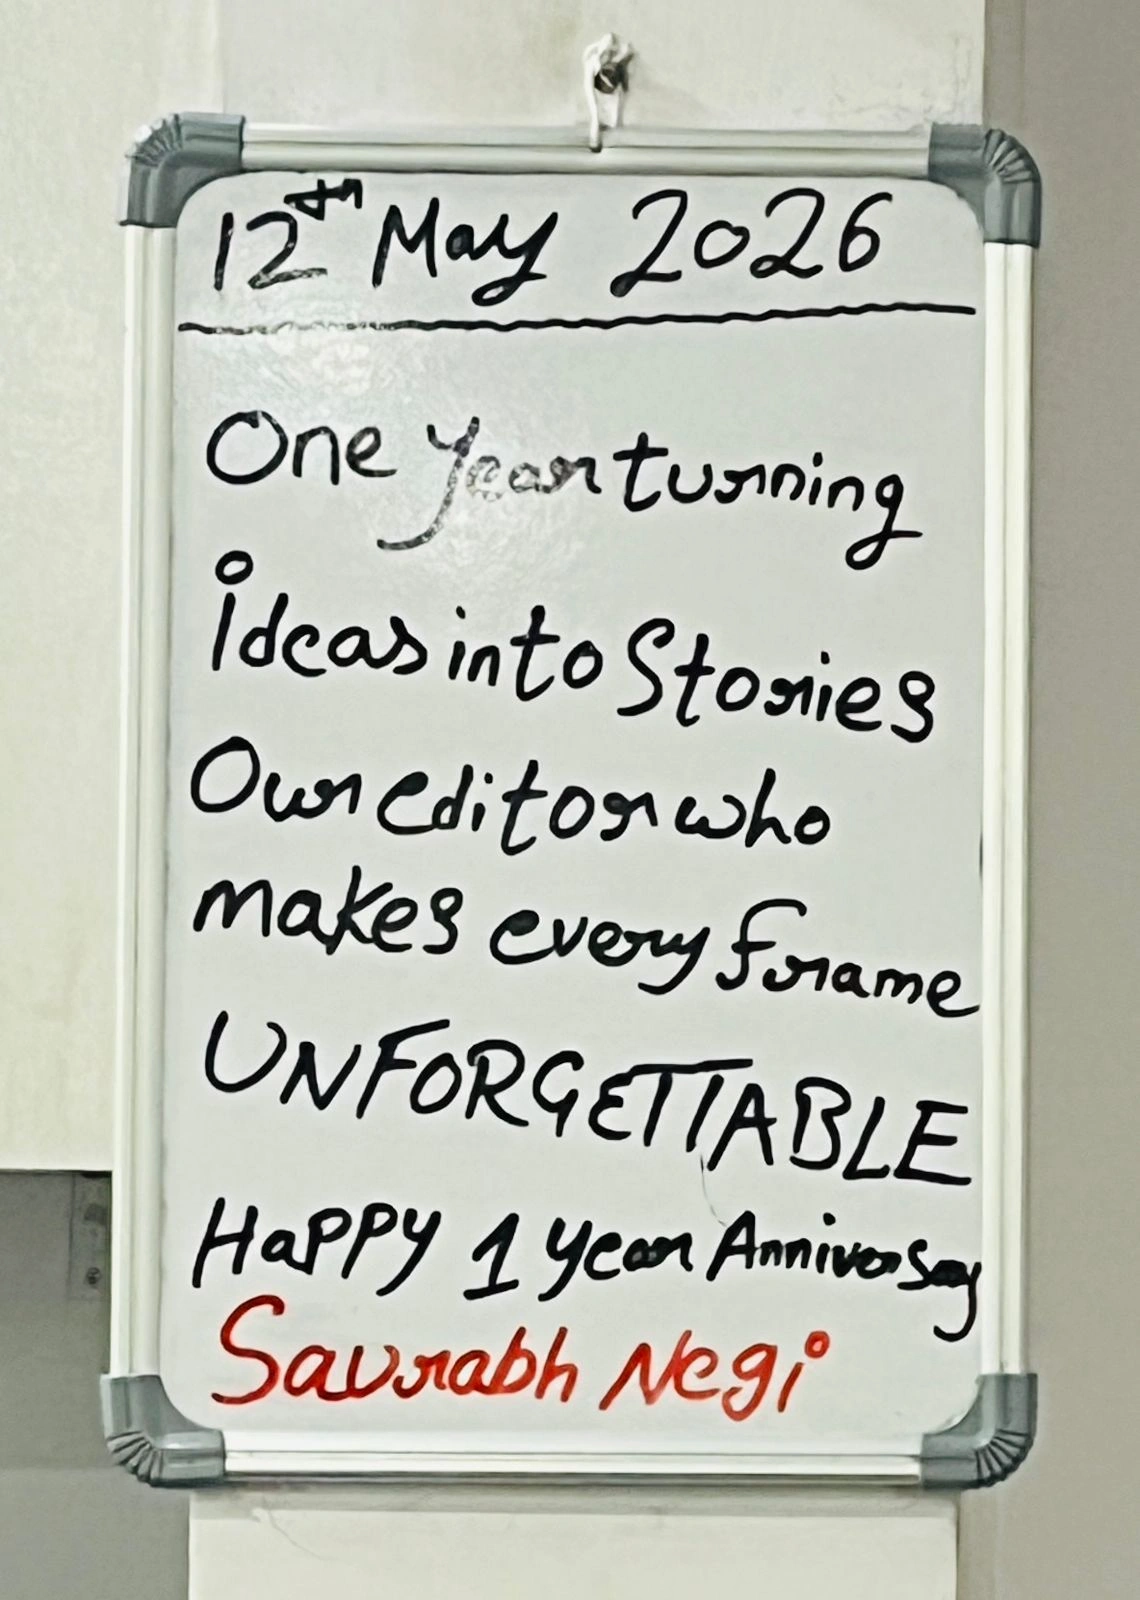 12th May 2026
One Year turning
ideas into Stories
Our editor who
makes every frame
UNFORGETTABLE
HaPPY 1 Year Anniversary
Saurabh Negi